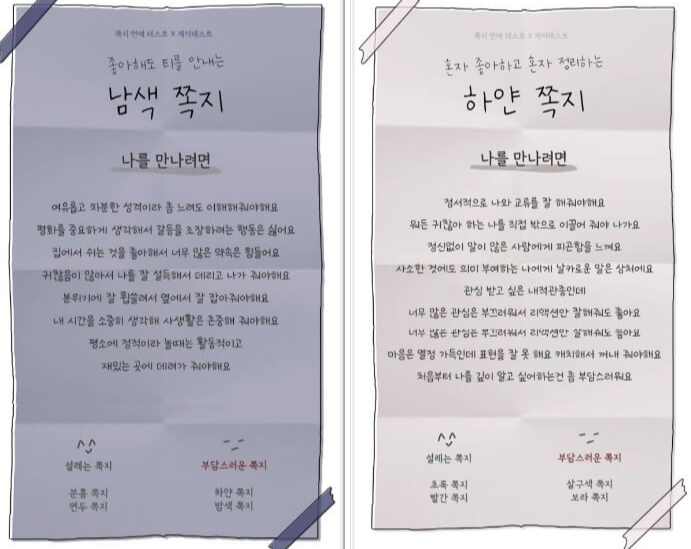 쪽지 번애 테스트 X 케이테스트
좋아해도 티를 안내는
남색 쪽지
나를 만나려면
여유롭고 차분한 성격이라 좀 느려도 이해해줘야해요
평화를 중요하게 생각해서 갈등을 조장하려는 행동은 싫어요
집에서 쉬는 것을 좋아해서 너무 많은 약속은 힘들어요
귀찮음이 많아서 나를 잘 설득해서 데리고 나가 줘야해요
분위기에 잘 휩쓸려서 옆에서 잘 잡아줘야해요
내 시간을 소중히 생각해 사생활은 존중해 줘야해요
평소에 정적이라 놀때는 활동적이고
재밌는 곳에 데려가 줘야해요
설레는 쪽지
부담스러운 쪽지
분홍 쪽지
하얀 쪽지
연두 쪽지
밤색 쪽지
쪽지 번애 테스트 X 케이테스트
혼자 좋아하고 혼자 정리하는
하얀 쪽지
나를 만나려면
정서적으로 나와 교류를 잘 해줘야해요
뭐든 귀찮아 하는 나를 직접 밖으로 이끌어 줘야 나가요
정신없이 말이 많은 사람에게 피곤함을 느껴요
사소한 것에도 의미 부여하는 나에게 날카로운 말은 상처에요
관심 받고 싶은 내적관종인데
너무 많은 관심은 부끄러워서 리액션만 잘해줘도 좋아요
너무 많은 관심은 부끄러워서 리액션만 잘해줘도 좋아요
마음은 열정 가득인데 표현을 잘 못 해요 캐치해서 꺼내 줘야해요
처음부터 나를 깊이 알고 싶어하는건 좀 부담스러워요
설레는 쪽지
부담스러운 쪽지
초록 쪽지
살구색 쪽지
빨간 쪽지
보라 쪽지